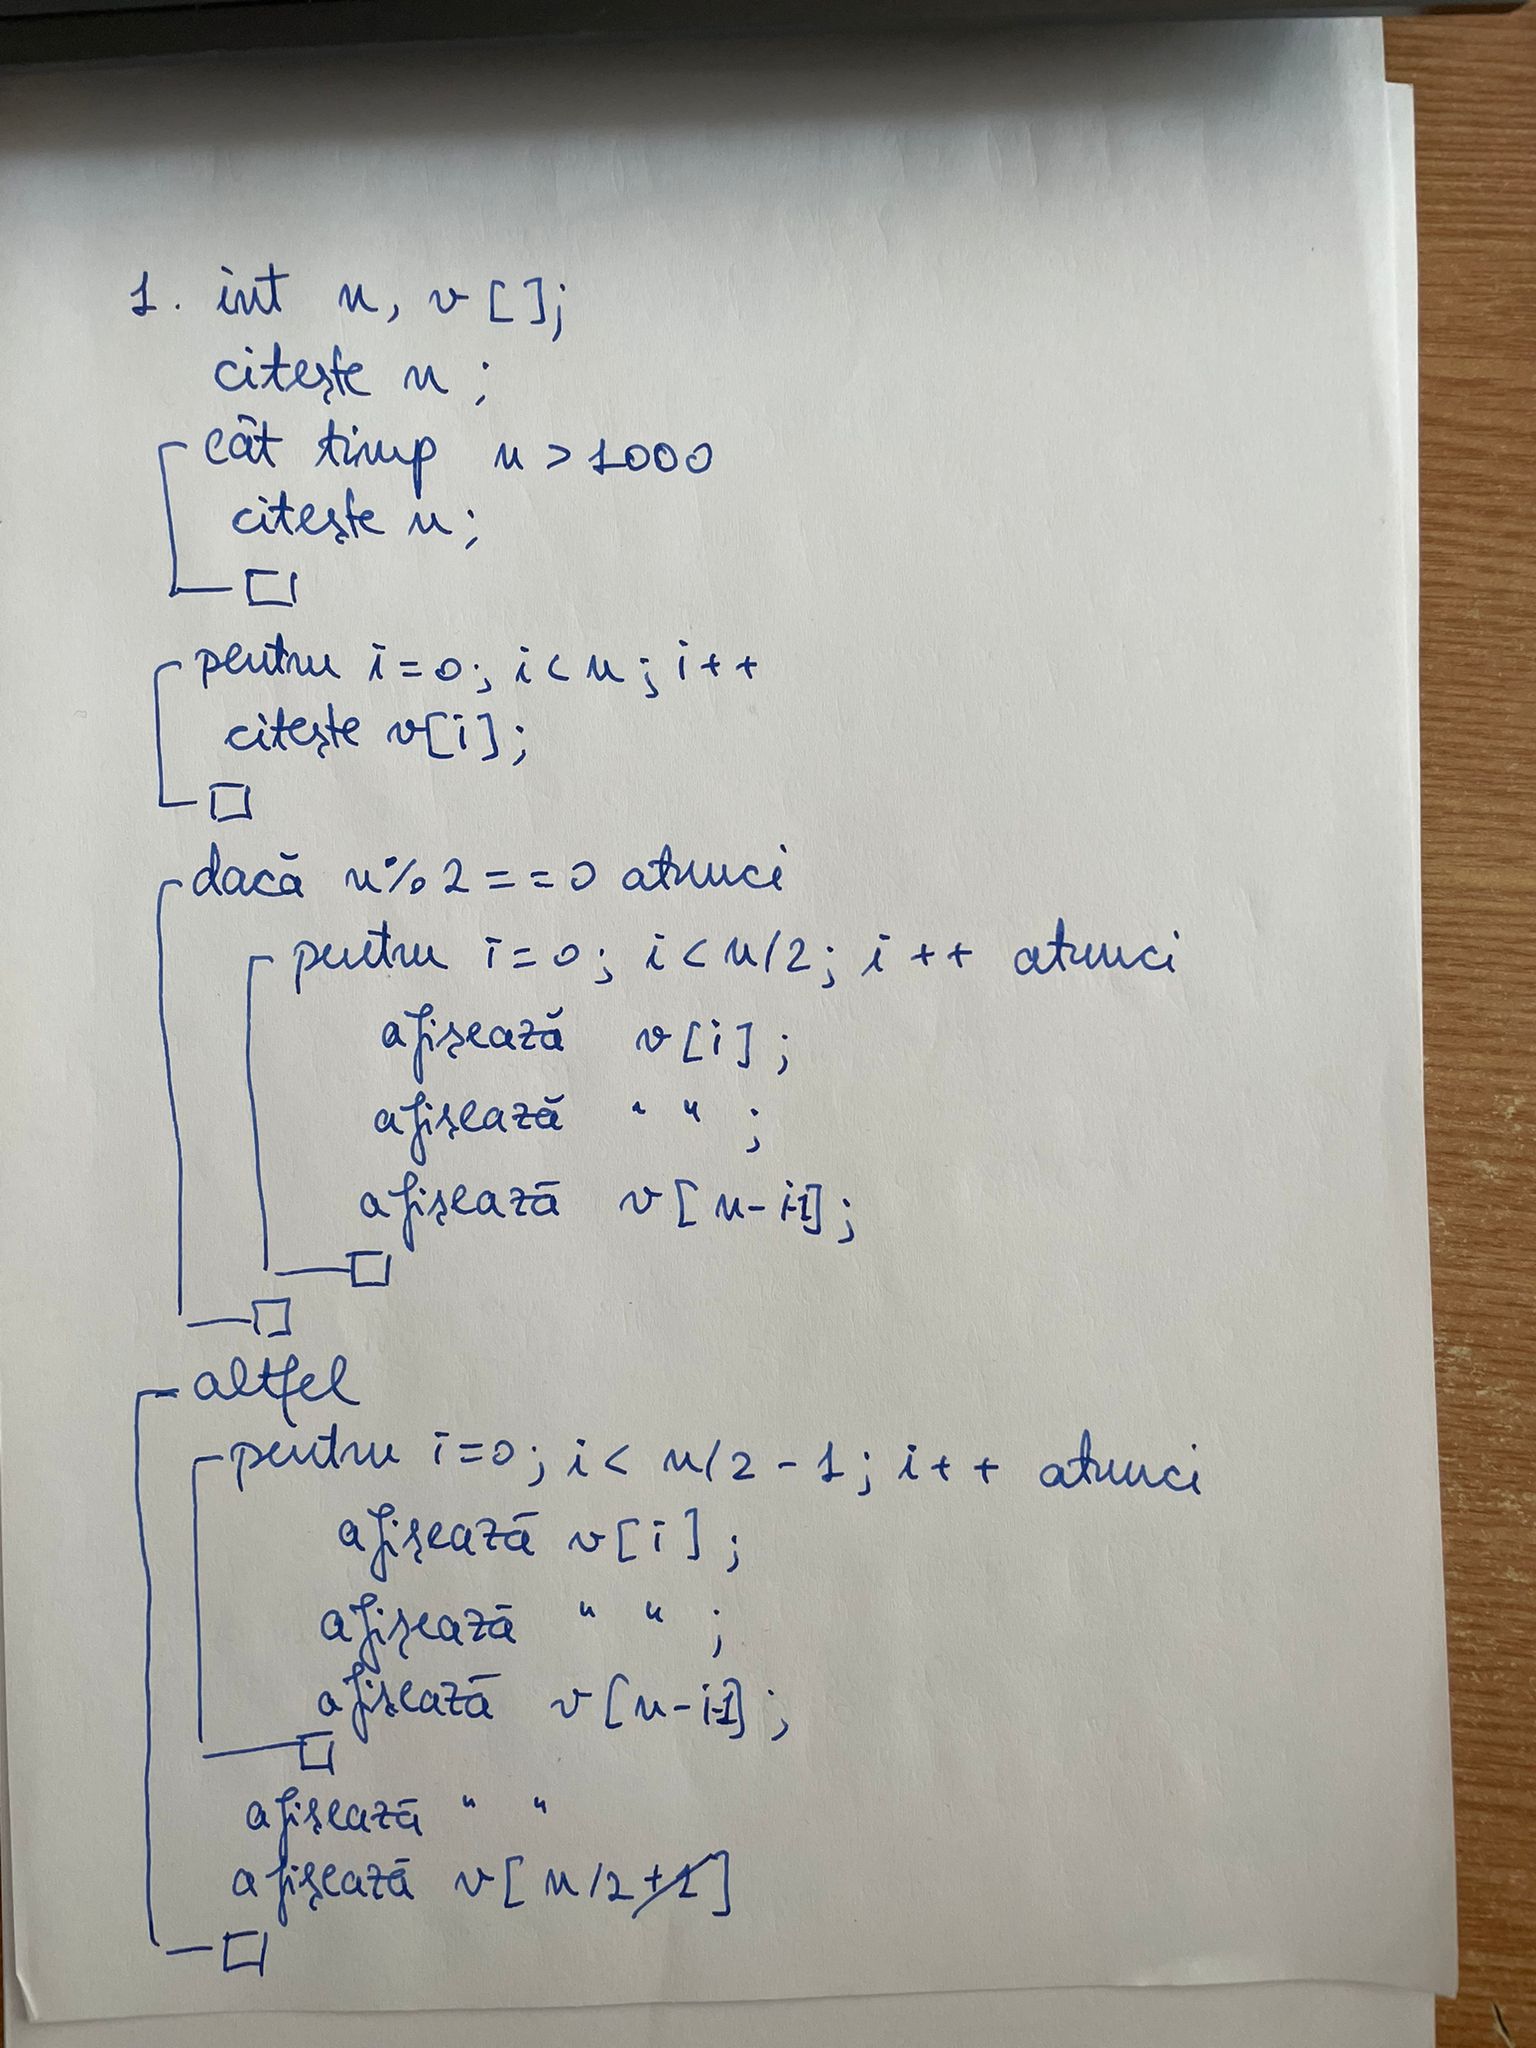 1. int n, v[];
citește n;
cât timp n > 1000
citește n;
pentru i=0; i<n; i++
citește v[i];
dacă n%2==0 atunci
pentru i=0; i<n/2; i++ atunci
afișează v[i];
afișează " ";
afișează v[n-i-1];
altfel
pentru i=0; i<n/2-1; i++ atunci
afișează v[i];
afișează " ";
afișează v[n-i-1];
afișează " "
afișează v[n/2]